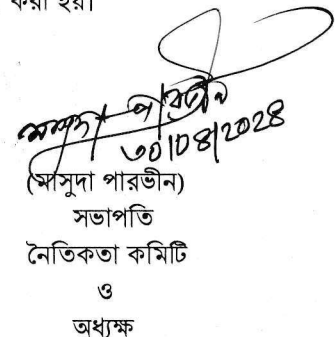 করা হয়।
মাসুদা পারভীন
৩০|০৪|২০২৪
(মাসুদা পারভীন)
সভাপতি
নৈতিকতা কমিটি
ও
অধ্যক্ষ